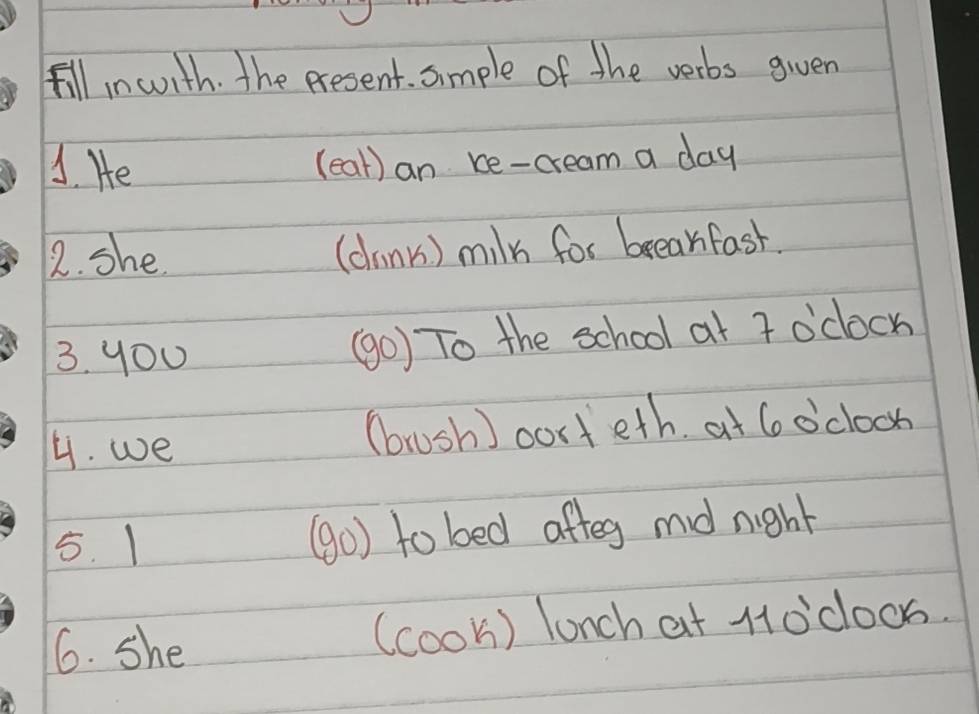 Fill in with. the present. simple of the verbs given
1. He (eat) an ice-cream a day
2. She. (drink) milk for breakfast.
3. you (go) To the school at 7 o'clock
4. we (brush) oort eth. at 6 o'clock
5. I (go) to bed afteg mid night
6. She (cook) lunch at 11 o'clock.